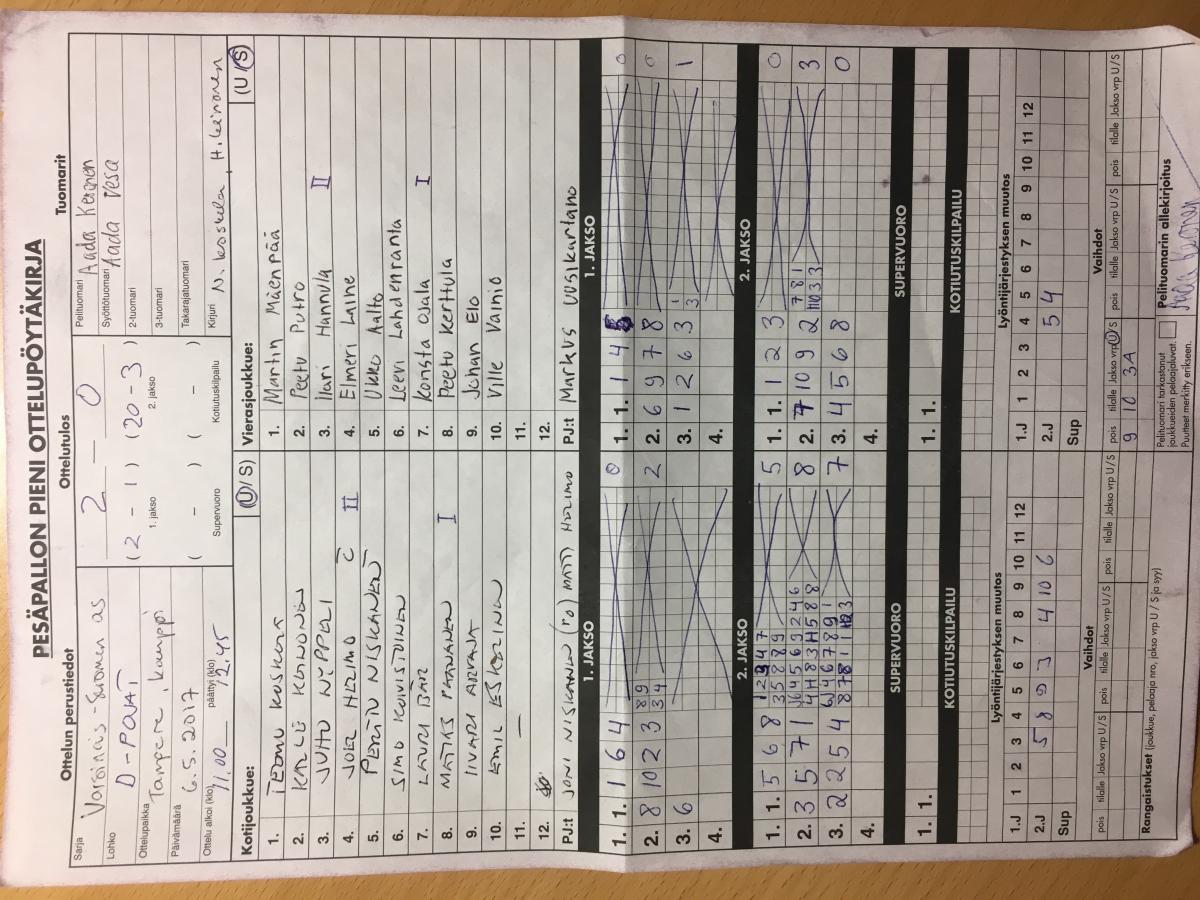 PESÄPALLON PIENI OTTELUPÖYTÄKIRJA
Ottelun perustiedot
Ottelutulos
Tuomarit
Sarja
Varsinais-Suomen as
Lohko
D-POJAT
Ottelupaikka
Tampere, kauppi
Päivämäärä
6.5.2017
Ottelu alkoi (klo)
11.00
päättyi (klo)
12.45
2 – 0
( 2 – 1 ) ( 20 – 3 )
1. jakso
2. jakso
( – ) ( – )
Supervuoro
Kotiutuskilpailu
Pelituomari
Aada Keronen
Syöttötuomari
Aada Vesa
2-tuomari
3-tuomari
Takarajatuomari
Kirjuri
N. Koskela, H. Leinonen
Kotijoukkue:
(U / S)
1. TEEMU KUSKOLA
2. KALLE KEINONEN
3. JUHO NIPPELI
4. JOEL HERIMO C II
5. PERTTU NISKANEN
6. SIMO KOIVISTOINEN
7. LAURI BÄR
8. MATIAS PAANANEN I
9. IIVARI ARVANA
10. EEMIL ESKOLINEN
11. —
12.
PJ:t JONI NISKANEN (PJ) MATTI HERIMO
Vierasjoukkue:
(U / S)
1. Martin Mäenpää
2. Peetu Putro
3. Ilari Hannula II
4. Elmeri Laine
5. Ukko Aalto
6. Leevi Lahdenranta
7. Konsta Ojala I
8. Peetu Kerttula
9. Johan Elo
10. Ville Vainio
11.
12.
PJ:t Markus Uusikartano
1. JAKSO
1. 1. 1 6 4 0
2. 8 10 2 3 8 9 3 4 2
3. 6
4.
1. JAKSO
1. 1. 1 4 5 0
2. 6 9 7 8 0
3. 1 2 6 3 1
4.
2. JAKSO
1. 1. 5 6 8 5
2. 3 5 7 1 8
3. 2 2 5 4 7
4.
2. JAKSO
1. 1. 1 2 3 0
2. 7 10 9 2 3
3. 4 5 6 8 0
4.
SUPERVUORO
1. 1.
SUPERVUORO
1. 1.
KOTIUTUSKILPAILU
KOTIUTUSKILPAILU
Lyöntijärjestyksen muutos
1.J 1 2 3 4 5 6 7 8 9 10 11 12
2.J 5 8 9 3 4 10 6
Sup
Lyöntijärjestyksen muutos
1.J 1 2 3 4 5 6 7 8 9 10 11 12
2.J 5 4
Sup
Vaihdot
pois tilalle Jakso vrp U / S pois tilalle Jakso vrp U / S pois tilalle Jakso vrp U / S
Vaihdot
pois tilalle Jakso vrp U / S pois tilalle Jakso vrp U / S pois tilalle Jakso vrp U / S
9 10 3A
Rangaistukset (joukkue, pelaaja nro, jakso vrp U / S ja syy)
Pelituomari tarkastanut
joukkueiden pelaajaluvat.
Puutteet merkitty erikseen.
Pelituomarin allekirjoitus
Aada Keronen